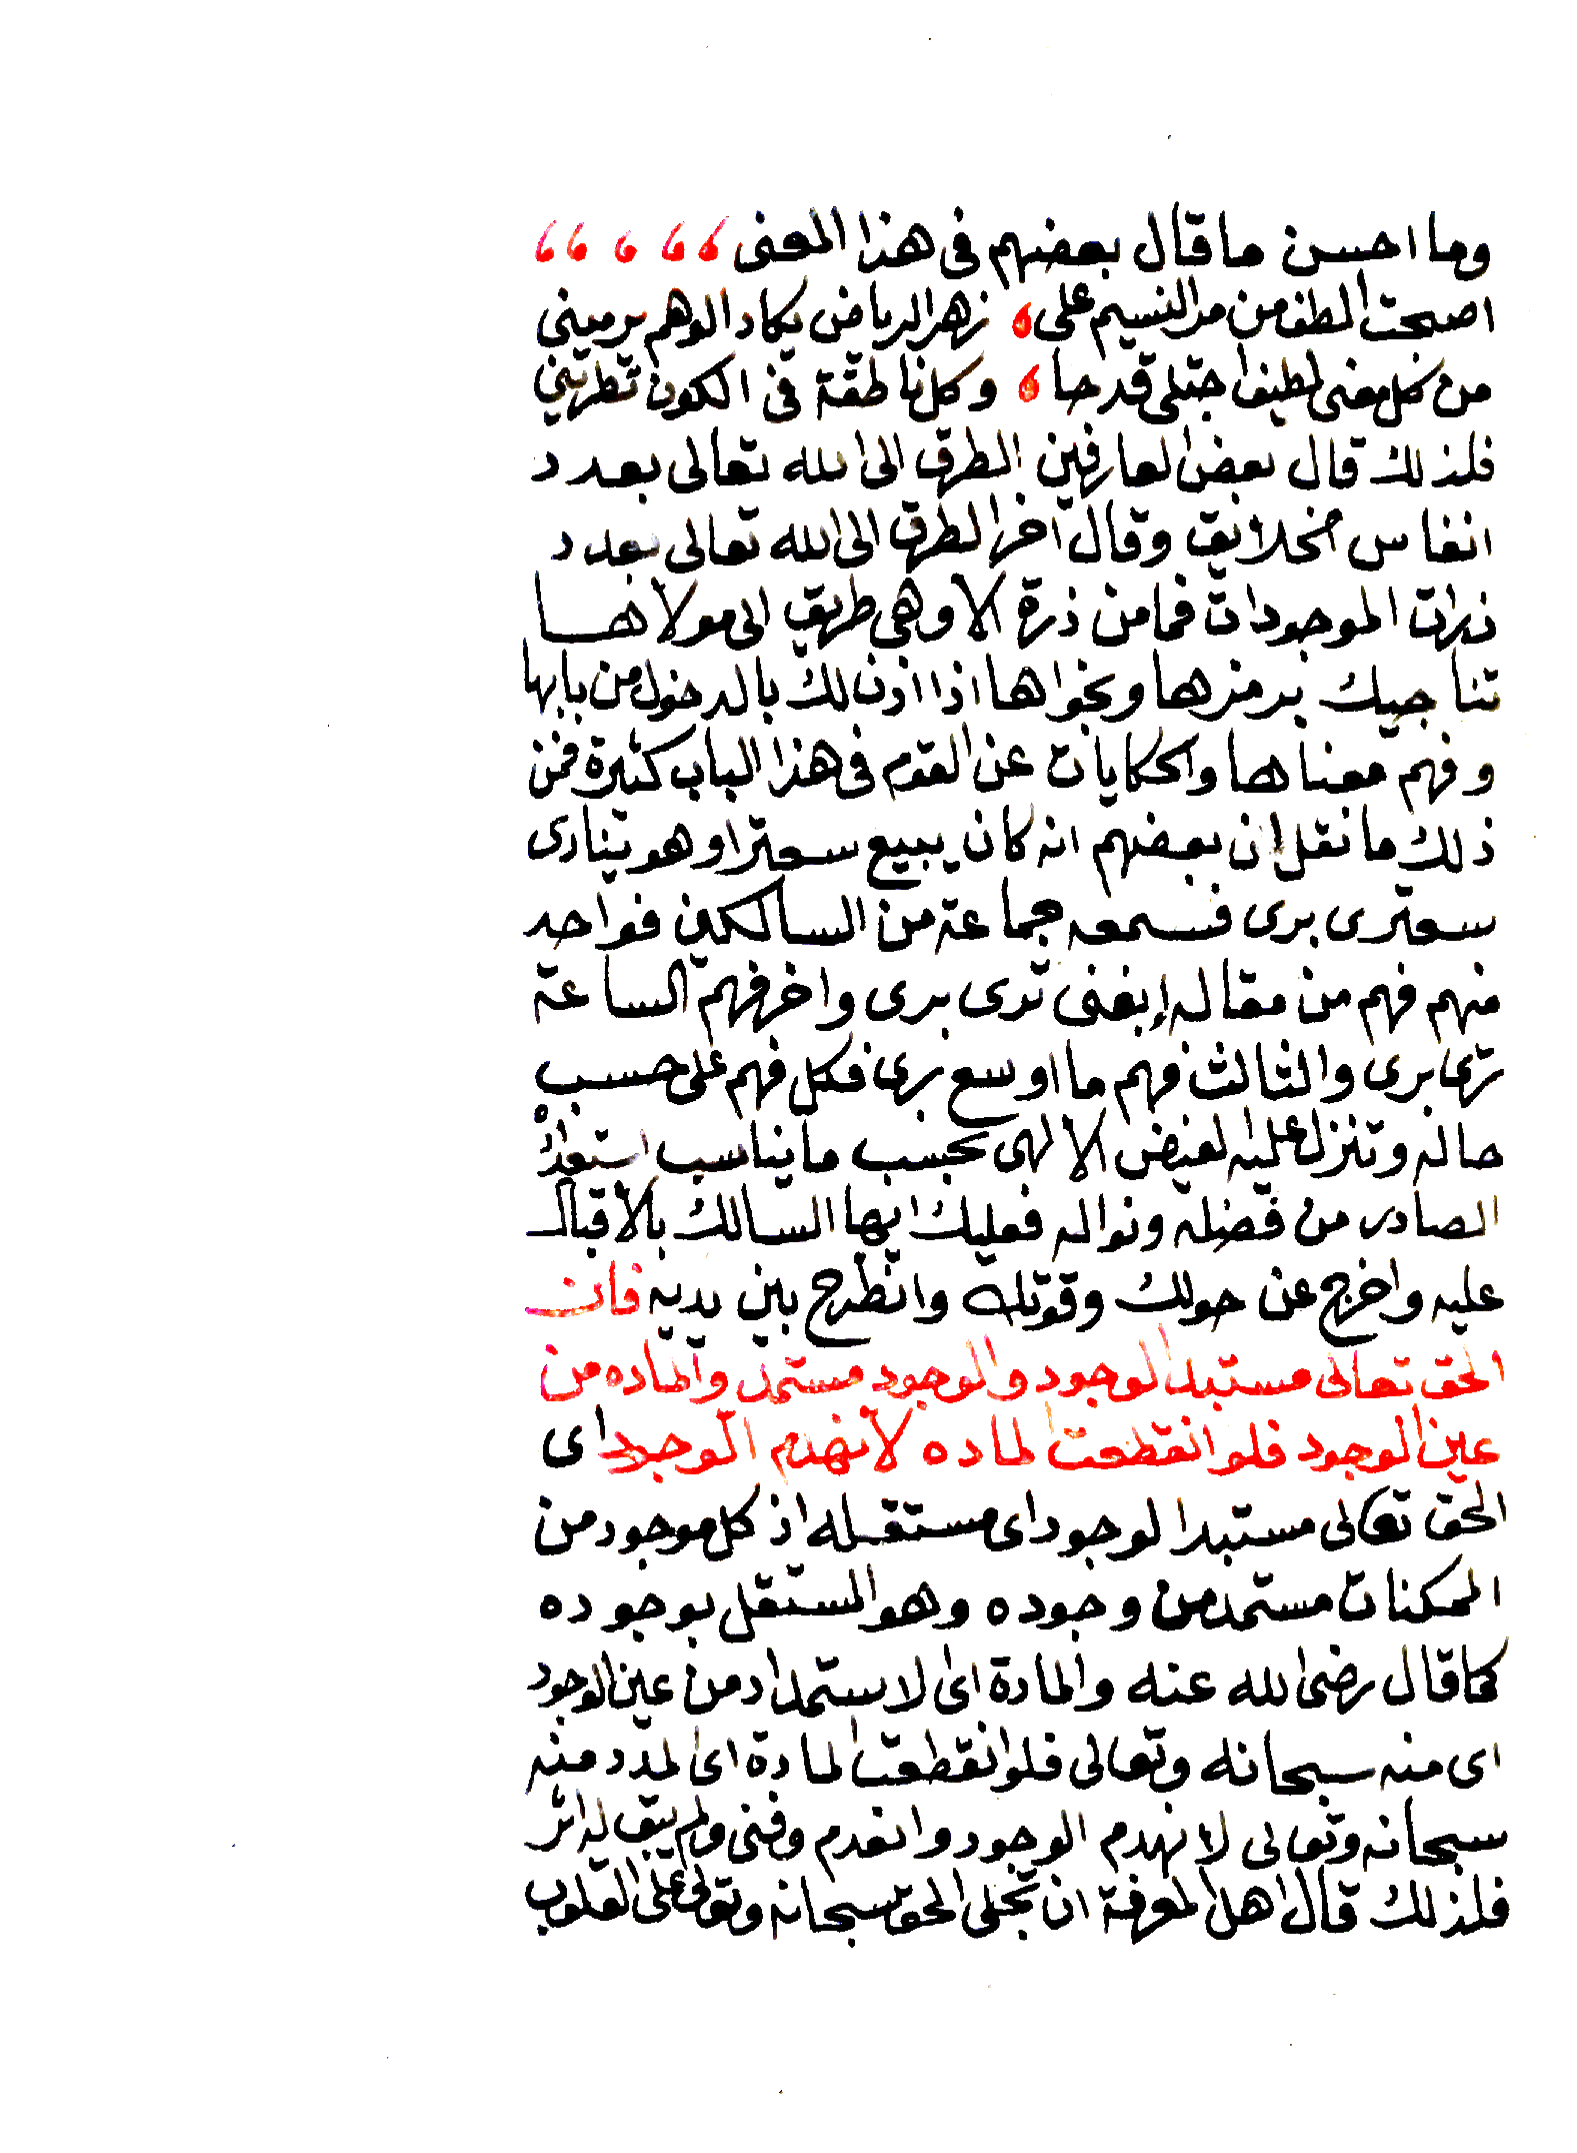 وما احسن ما قال بعضهم فى هذا المعنى ، ، ، ، ،
اصبحت الطف من مر النسيم على ، زهر الرياض يكاد الوهم يرميني
من كل معنى لطيف اجتلى قدحا ، وكل ناطقة في الكون تطربني
فلذلك قال بعض العارفين الطرق الى الله تعالى بعدد
انفاس الخلايق وقال آخر الطرق الى الله تعالى بعدد
ذرات الموجودات فما من ذرة الا وهى طريق الى مولاها
تناجيك برمزها ونجواها اذا اذن لك بالدخول من بابها
وفهم معناها والحكايات عن القوم فى هذا الباب كثيرة فمن
ذلك ما نقل ان بعضهم انه كان يبيع سعترا وهو ينادى
سعترى برى فسمعه جماعة من السالكين فواحد
منهم فهم من مقاله إبغنى ترى برى واخر فهم الساعة
ترى برى والثالث فهم ما اوسع برى فكل فهم على حسب
حاله وتنزل عليه الفيض الالهى بحسب ما يناسب استعداده
الصادر من فضله ونواله فعليك ايها السالك بالاقبال
عليه واخرج عن حولك وقوتك وانطرح بين يديه فان
الحق تعالى مستبد الوجود والوجود مستمد والماده من
عين الوجود فلو انقطعت الماده لانهدم الوجود اى
الحق تعالى مستبد الوجود اى مستقله اذ كل موجود من
الممكنات مستمد من وجوده وهو المستقل بوجوده
كما قال رضى الله عنه والمادة اى الاستمداد من عين الوجود
اى منه سبحانه وتعالى فلو انقطعت المادة اى المدد منه
سبحانه وتعالى لانهدم الوجود وانعدم وفنى ولم يبق له اثر
فلذلك قال اهل المعرفة ان تجلى الحق سبحانه وتعالى على القلوب